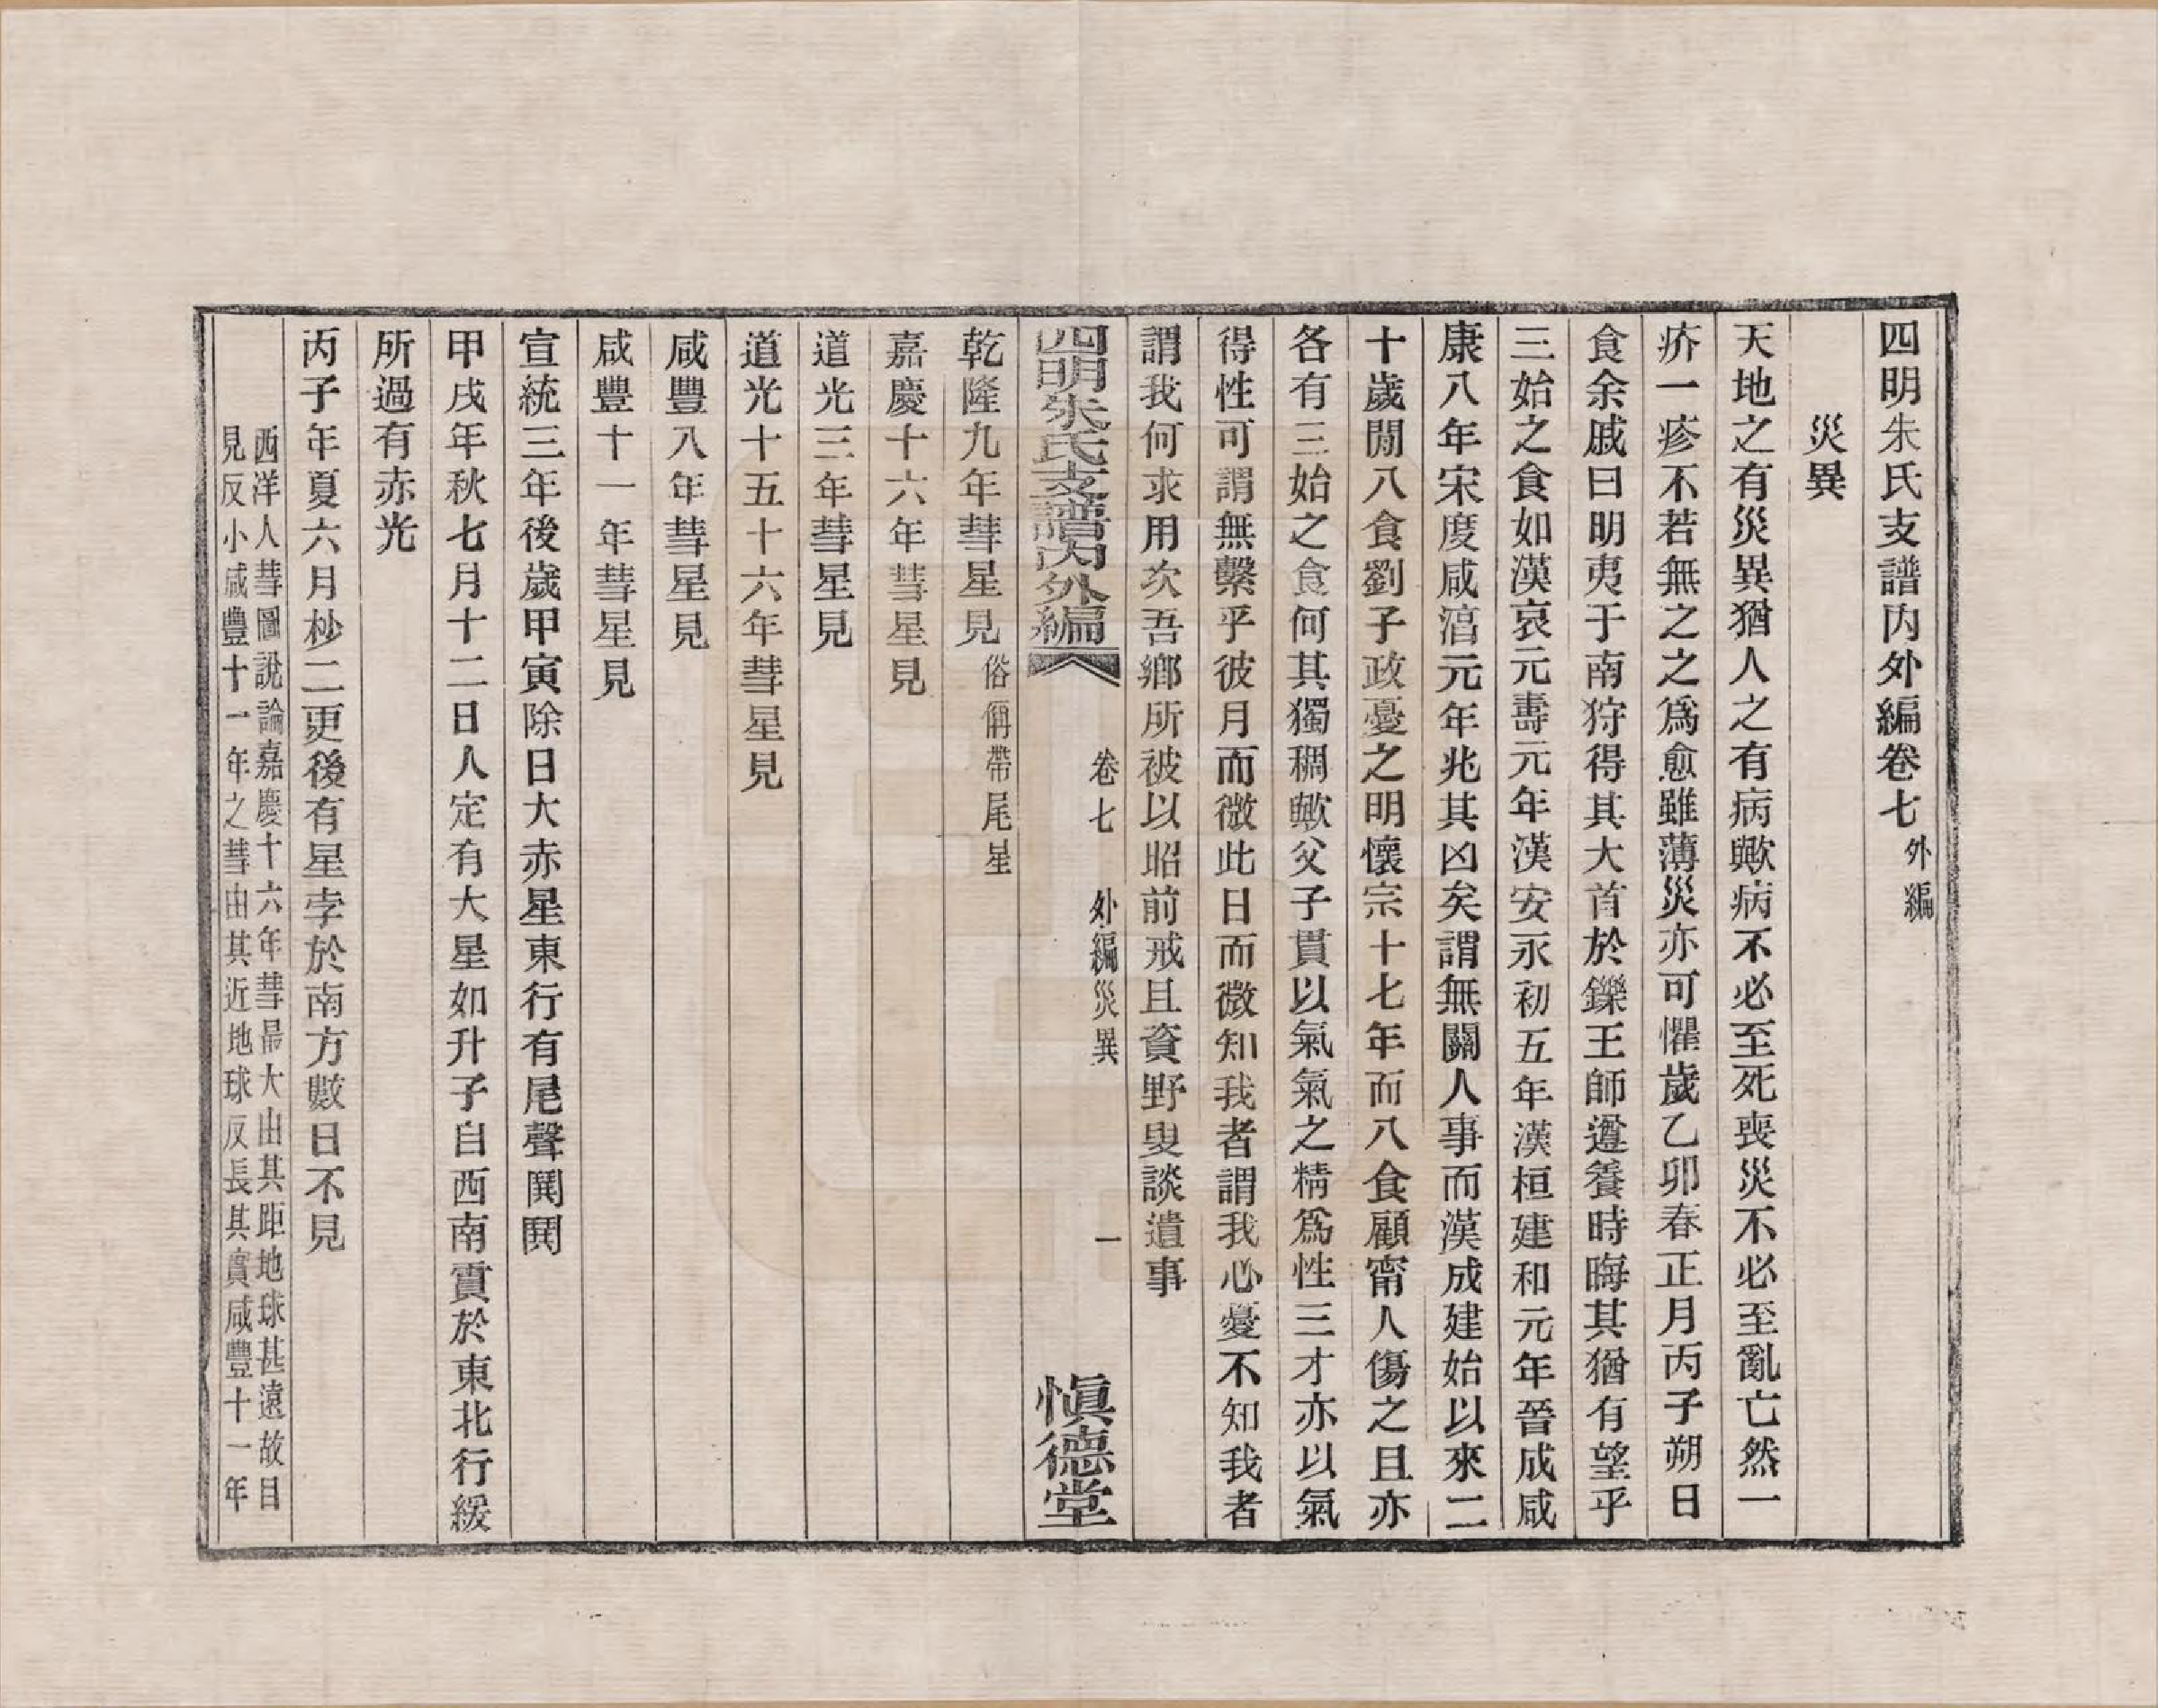 四明朱氏支譜內外編卷七外編
災異
天地之有災異猶人之有病歟病不必至死喪災不必至亂亡然一
疥一疹不若無之之爲愈雖薄災亦可懼歲乙卯春正月丙子朔日
食余戚曰明夷于南狩得其大首於鑠王師遵養時晦其猶有望乎
三始之食如漢哀元壽元年漢安永初五年漢桓建和元年晉成咸
康八年宋度咸淳元年兆其凶矣謂無關人事而漢成建始以來二
十歲閒八食劉子政憂之明懷宗十七年而八食顧甯人傷之且亦
各有三始之食何其獨稠歟父子貫以氣氣之精爲性三才亦以氣
得性可謂無繫乎彼月而微此日而微知我者謂我心憂不知我者
謂我何求用次吾鄉所被以昭前戒且資野叟談遺事
四明朱氏支譜內外編
卷七
外編災異
一
慎德堂
乾隆九年彗星見俗偁帚尾星
嘉慶十六年彗星見
道光三年彗星見
道光十五十六年彗星見
咸豐八年彗星見
咸豐十一年彗星見
宣統三年後歲甲寅除日大赤星東行有尾聲鬨鬨
甲戌年秋七月十二日人定有大星如升子自西南賈於東北行緩
所過有赤光
丙子年夏六月杪二更後有星孛於南方數日不見
西洋人彗圖說論嘉慶十六年彗最大由其距地球甚遠故目
見反小咸豐十一年之彗由其近地球反長其實咸豐十一年